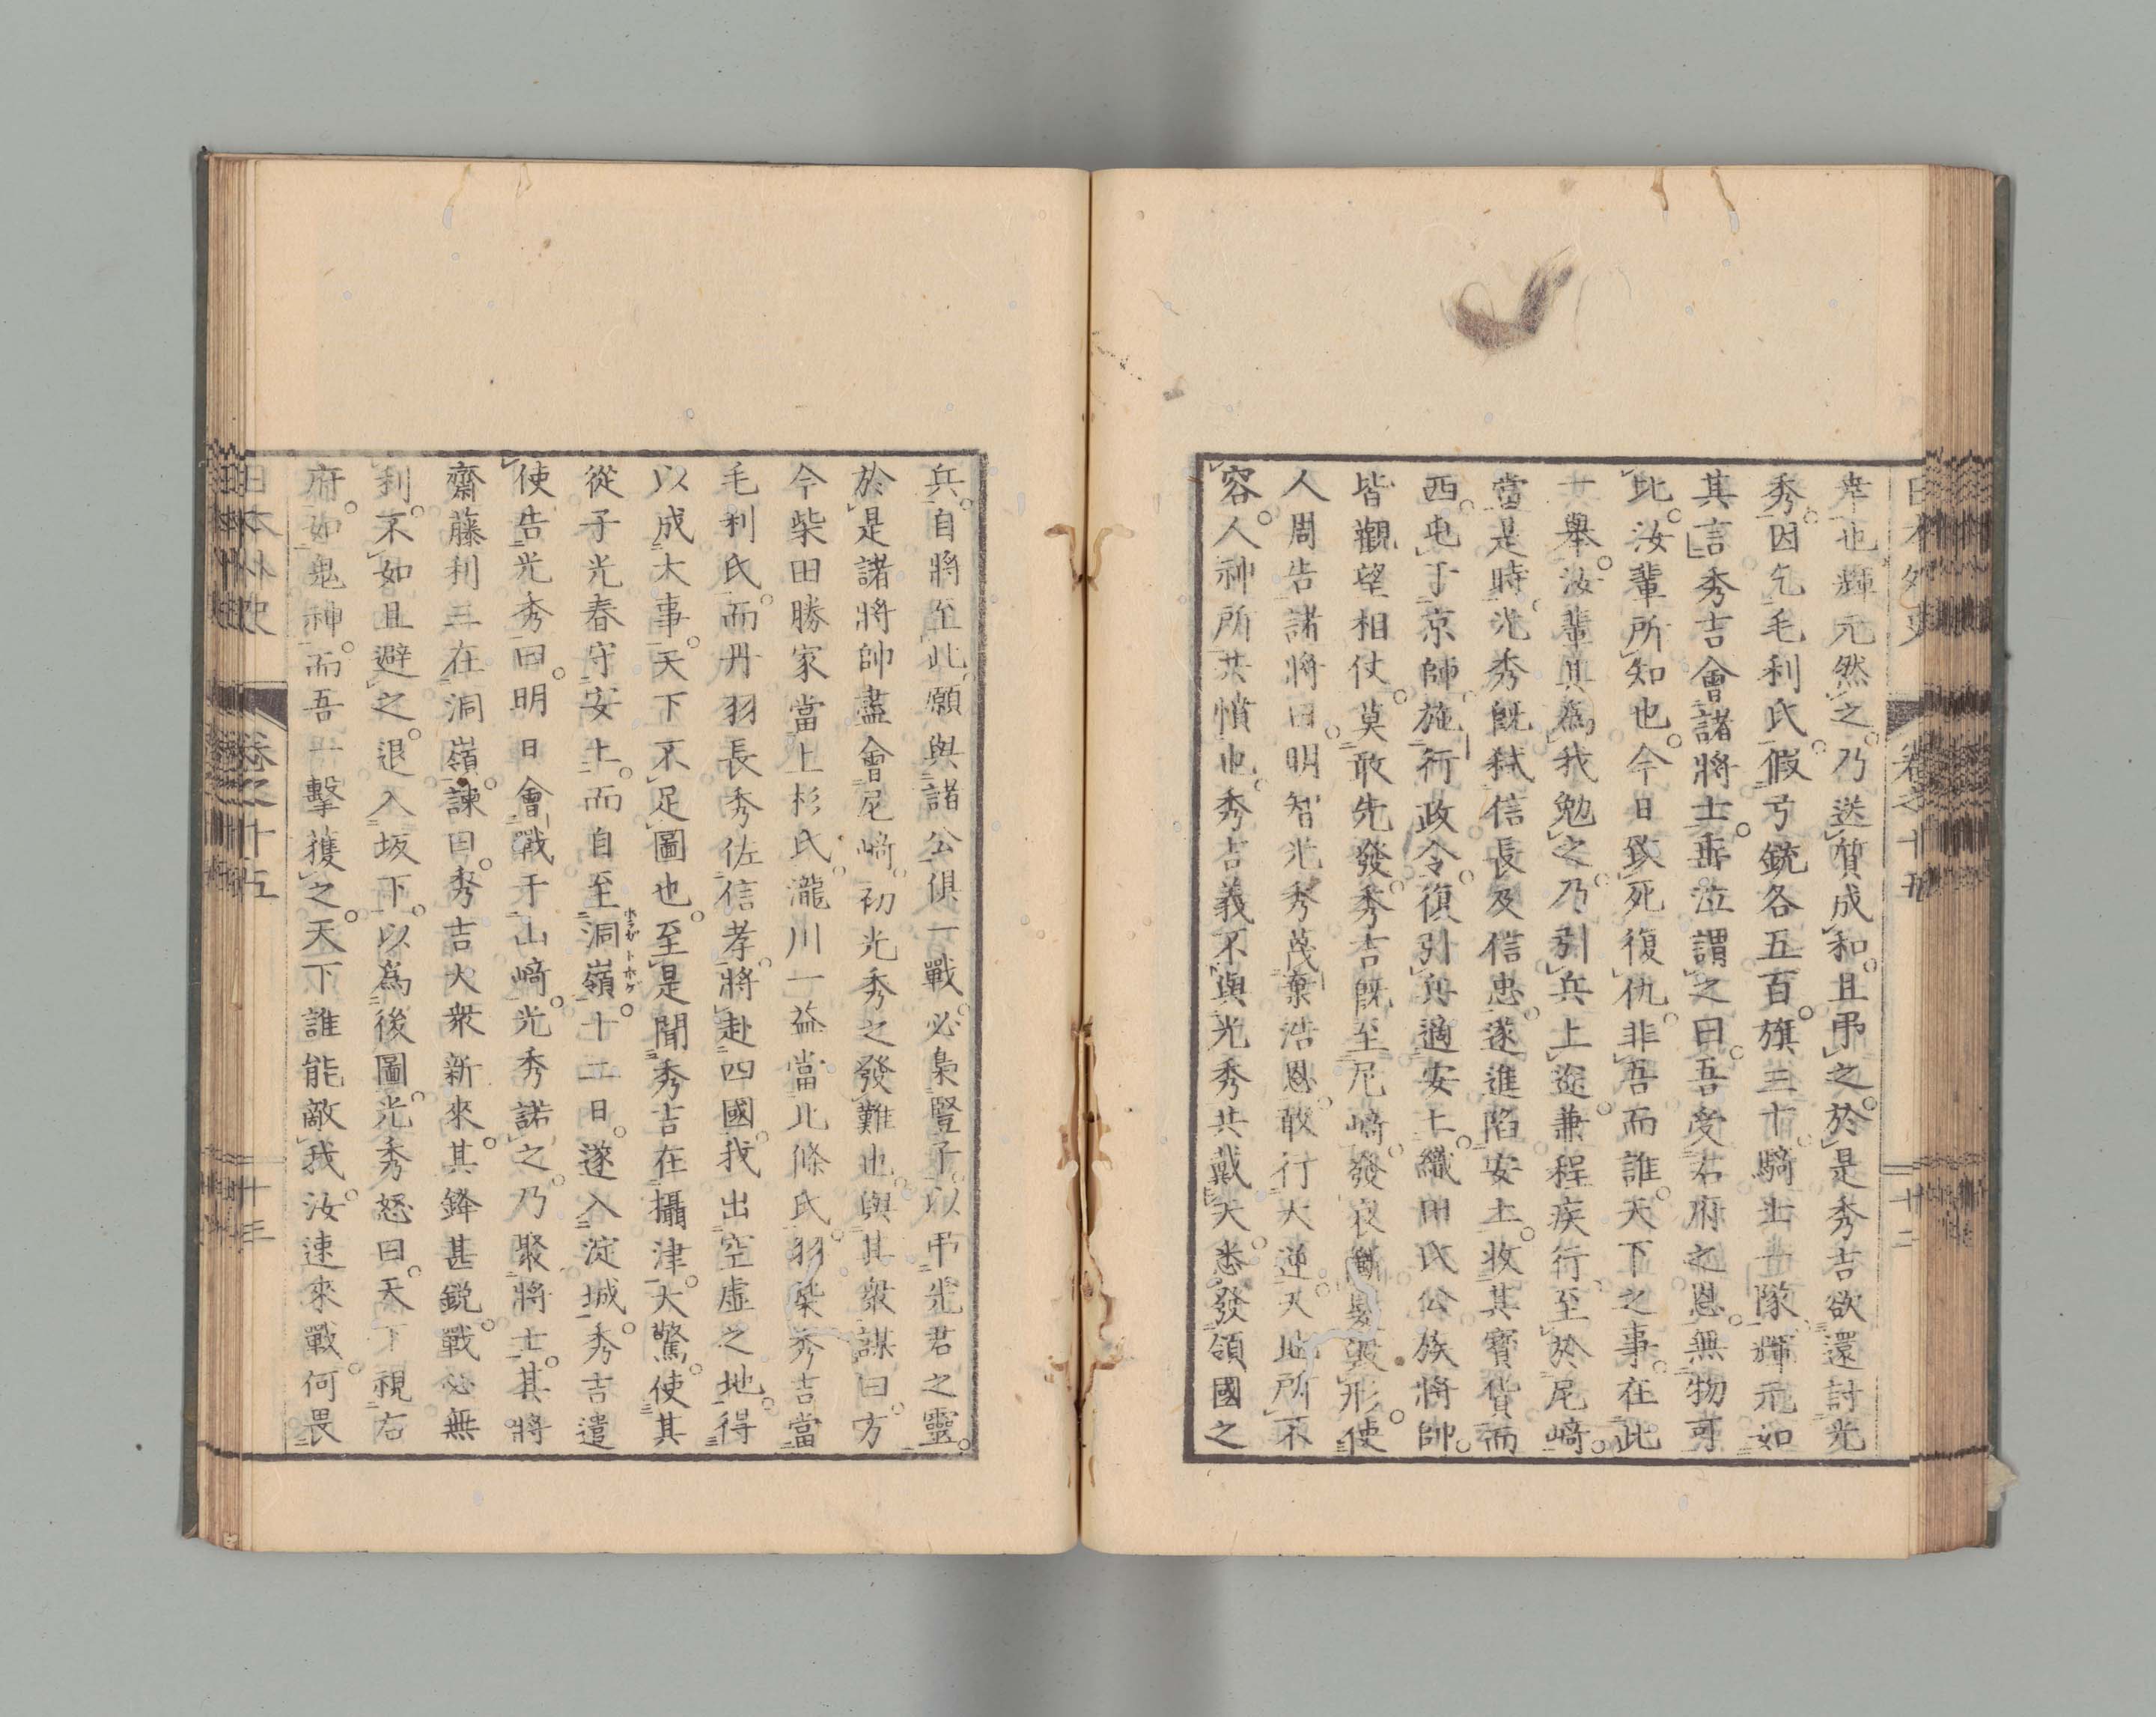 日本外史
卷之十五
廿二
幸也輝元然之乃送質成和且弔之於是秀吉欲還討光
秀因乞毛利氏假弓銃各五百旗三十騎士一隊輝元如
其言秀吉會諸將士垂泣謂之曰吾受右府之恩無物可
比汝輩所知也今日致死復仇非吾而誰天下之事在此
一擧汝輩其爲我勉之乃引兵上途兼程疾行至於尼﨑
當是時光秀既弑信長及信忠遂進陷安土收其寶貨而
西屯于京師施行政令復引兵適安土織田氏公族將帥
皆觀望相仗莫敢先發秀吉既至尼﨑發哀斷髮毀形使
人周告諸將曰明智光秀蔑棄浩恩敢行大逆天地所不
容人神所共憤也秀吉義不與光秀共戴天悉發領國之
兵自將至此願與諸公俱一戰必梟豎子以弔先君之靈
於是諸將帥盡會尼﨑初光秀之發難也與其衆謀曰方
今柴田勝家當上杉氏瀧川一益當北條氏羽柴秀吉當
毛利氏而丹羽長秀佐信孝將赴四國我出空虛之地得
以成大事天下不足圖也至是聞秀吉在攝津大驚使其
從子光春守安土而自至洞嶺十二日遂入淀城秀吉遣
使告光秀曰明日會戰于山﨑光秀諾之乃聚將士其將
齋藤利三在洞嶺諫曰秀吉大衆新來其鋒甚鋭戰必無
利不如且避之退入坂下以爲後圖光秀怒曰天下視右
府如鬼神而吾一擊獲之天下誰能敵我汝速來戰何畏
日本外史
卷之十五
廿三